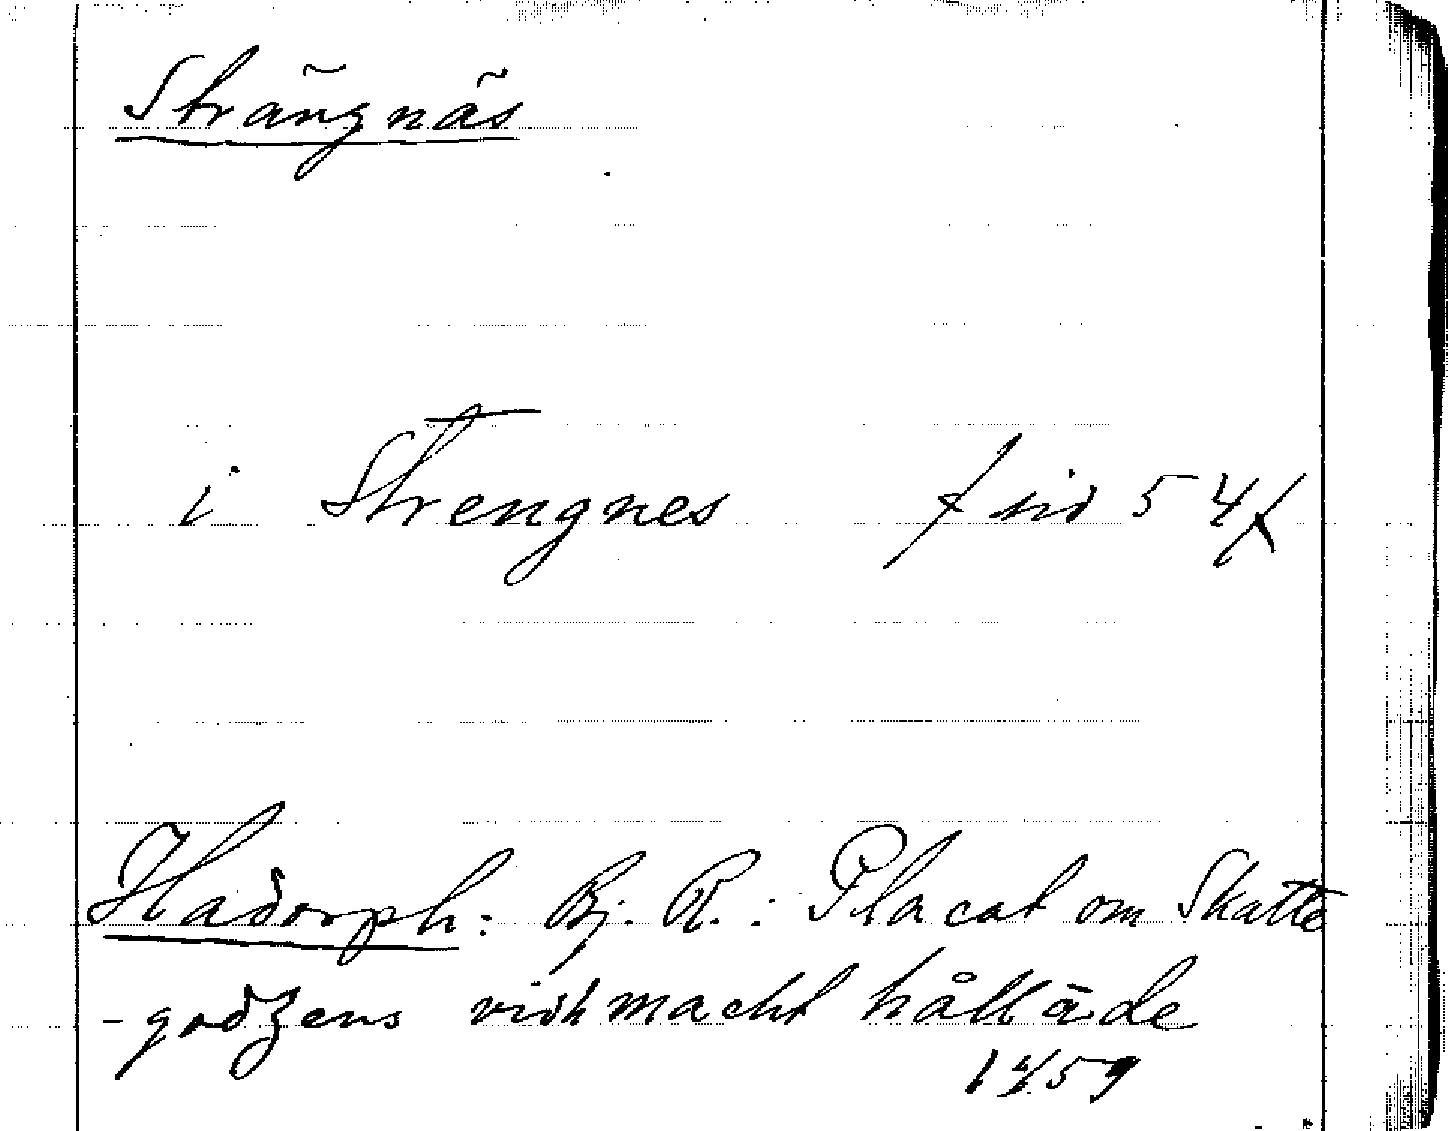 Strängnäs
i Strengnes / sid 54 /
Hadorph: Bj. R.: Placat om Skatte
-godzens vidh macht hållāde
1459